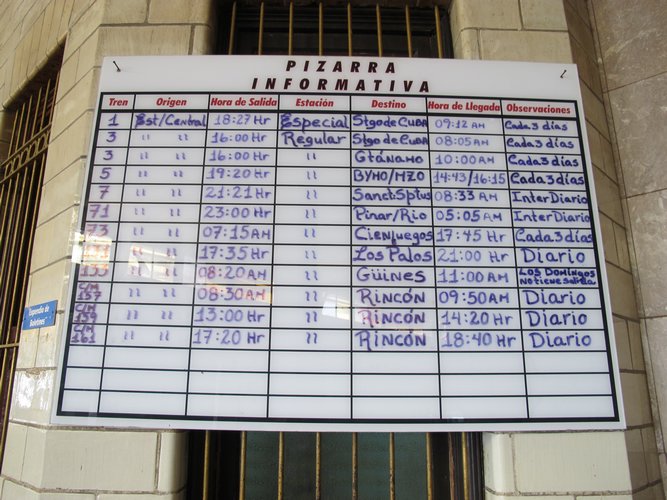 PIZARRA
INFORMATIVA
Tren Origen Hora de Salida Estación Destino Hora de Llegada Observaciones
1 Est/Central 18:27 Hr Especial Stgo de CUBA 09:12 AM Cada 3 días
3 " " 16:00 Hr Regular Stgo de CUBA 08:05 AM Cada 3 días
3 " " 16:00 Hr " Gtánamo 10:00 AM Cada 3 días
5 " " 19:20 Hr " BYMO/MZO 14:43/16:15 Cada 3 días
7 " " 21:21 Hr " Sanct.Sptus 08:33 AM InterDiario
71 " " 23:00 Hr " Pinar/Rio 05:05 AM InterDiario
73 " " 07:15 AM " Cienfuegos 17:45 Hr Cada 3 días
" " 17:35 Hr " Los Palos 21:00 Hr Diario
" " 08:20 AM " GÜINES 11:00 AM LOS DOMINGOS
No tiene Salida
C/M
157 " " 08:30 AM " RINCÓN 09:50 AM Diario
C/M
159 " " 13:00 Hr " RINCÓN 14:20 Hr Diario
C/M
161 " " 17:20 Hr " RINCÓN 18:40 Hr Diario
Expendio de
Boletines